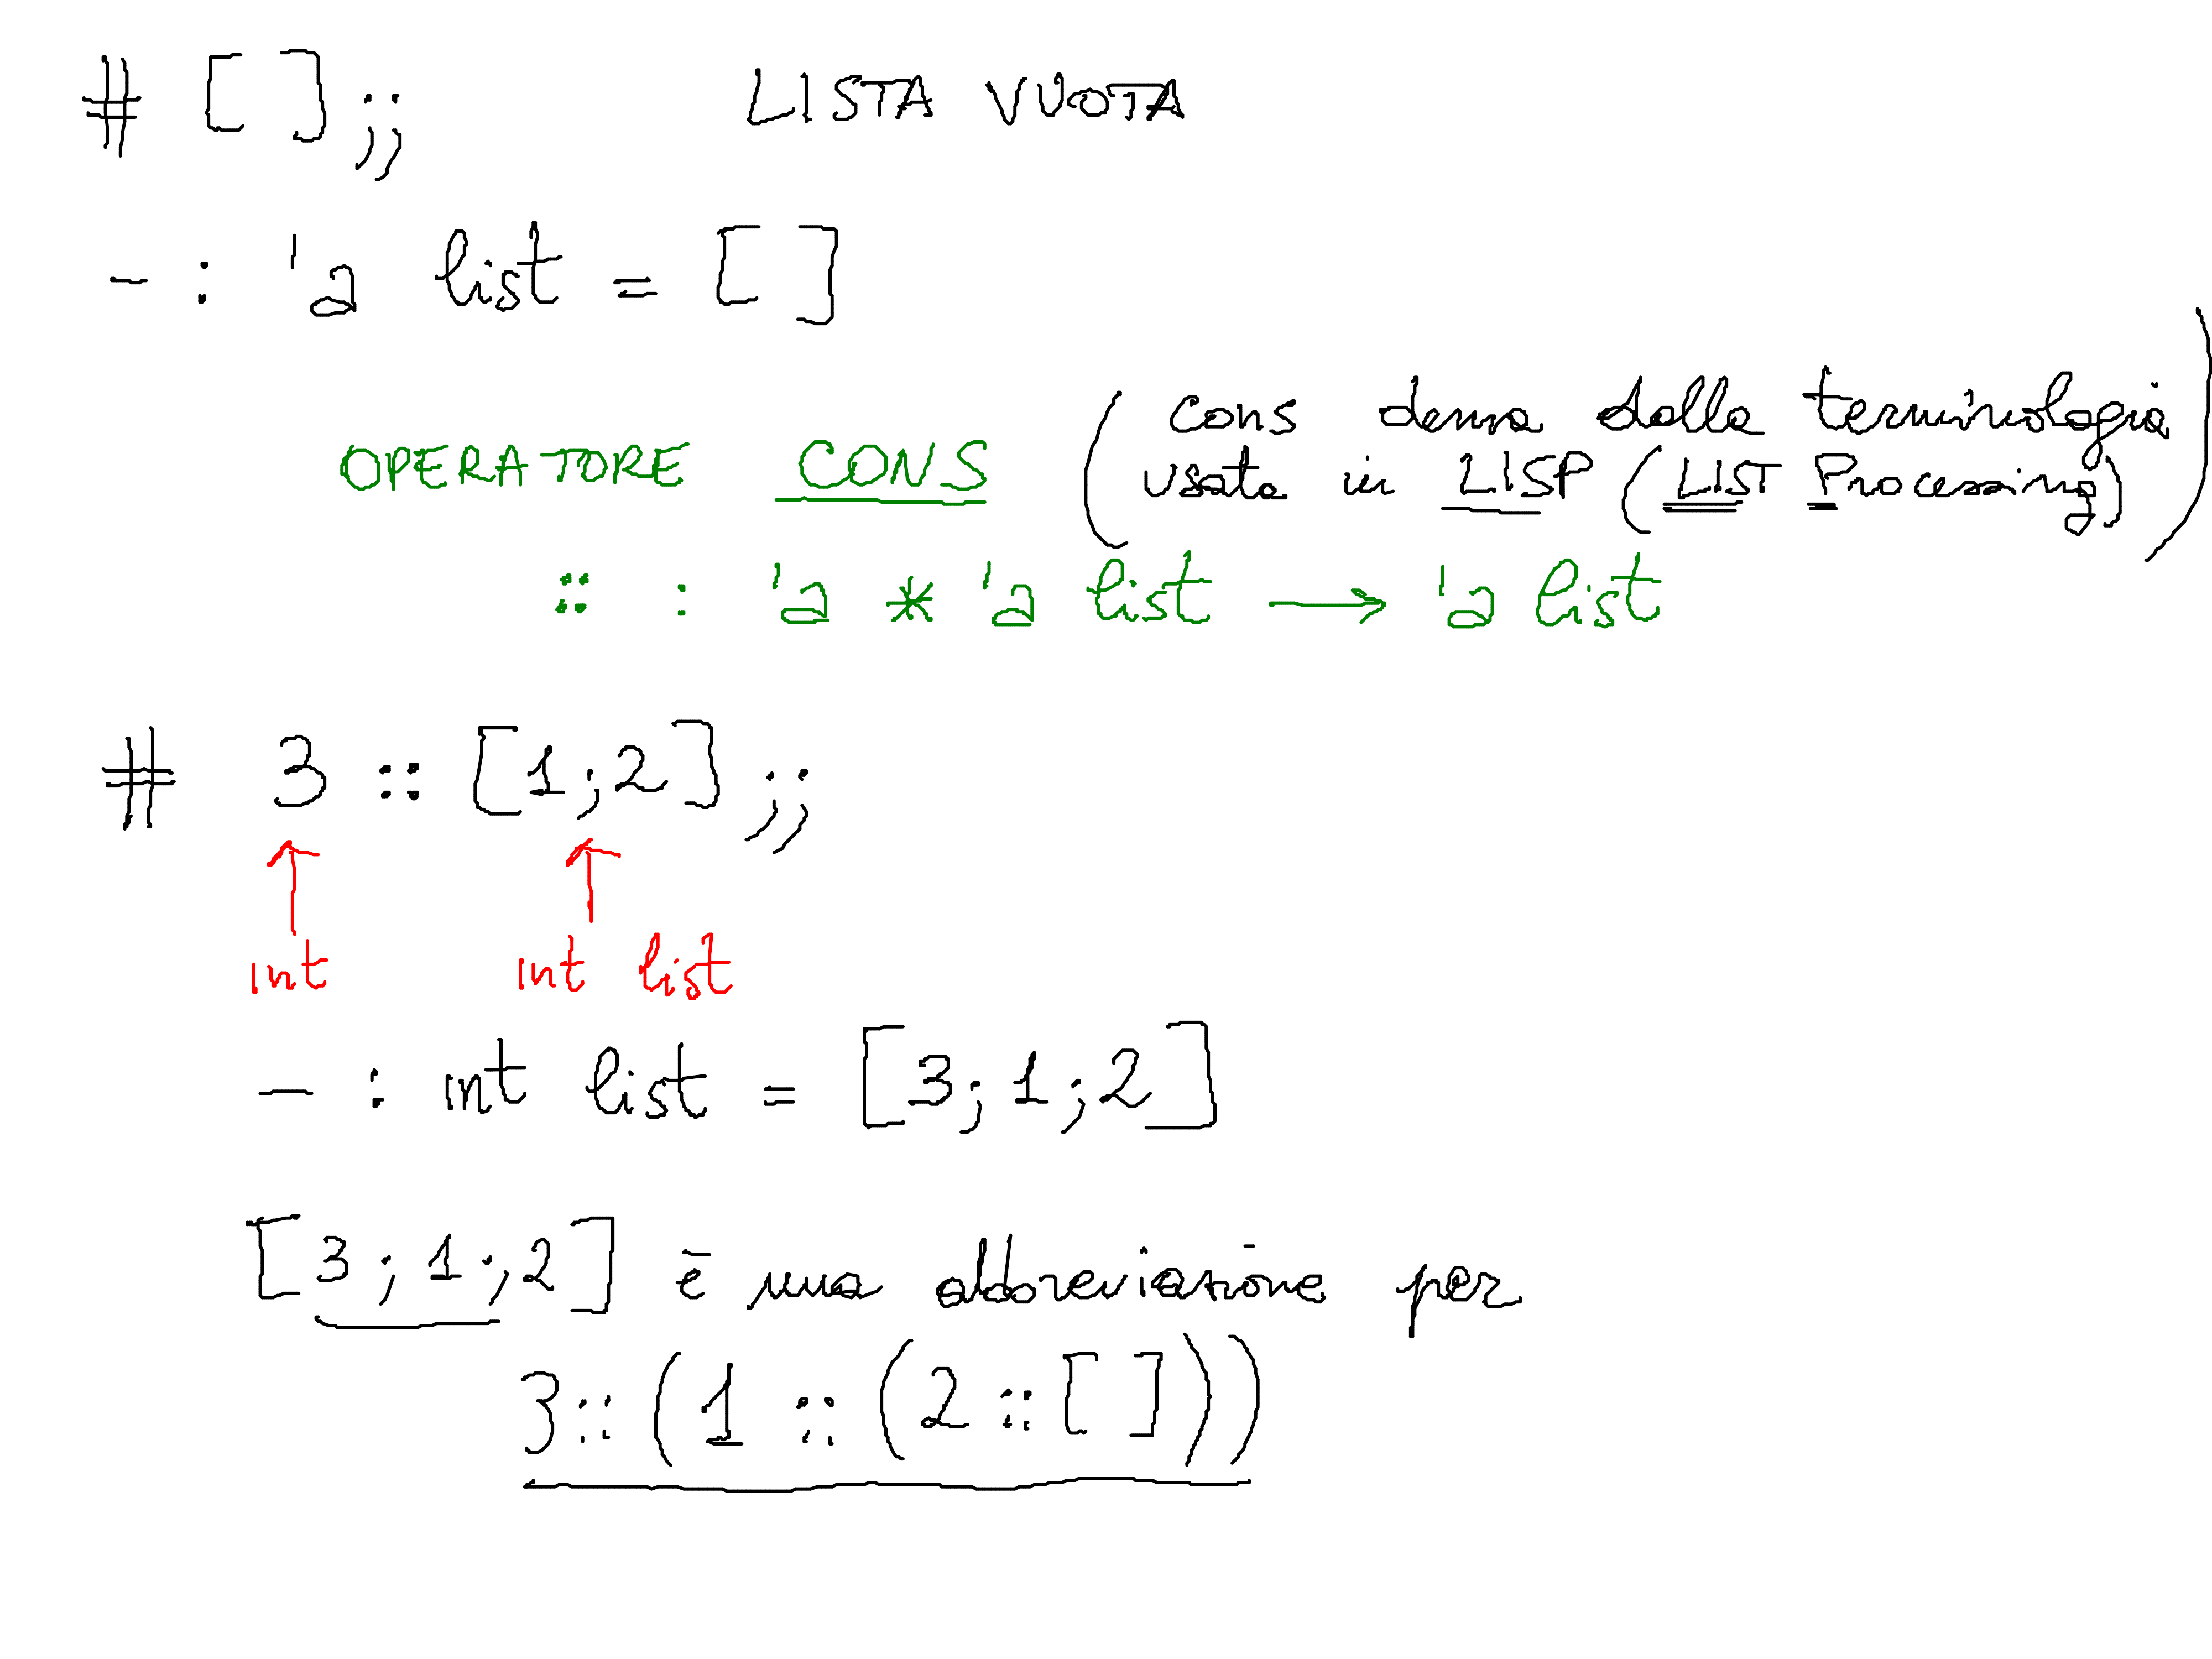 # [ ];; LISTA VUOTA
- : 'a list = [ ]
OPERATORE CONS (cons deriva dalla terminologia
usata in LISP (LIST Processing))
:: : 'a * 'a list → 'a list
# 3 :: [1;2];;
int int list
- : int list = [3;1;2]
[3;1;2] è una abbreviazione per
3::(1::(2::[ ]))